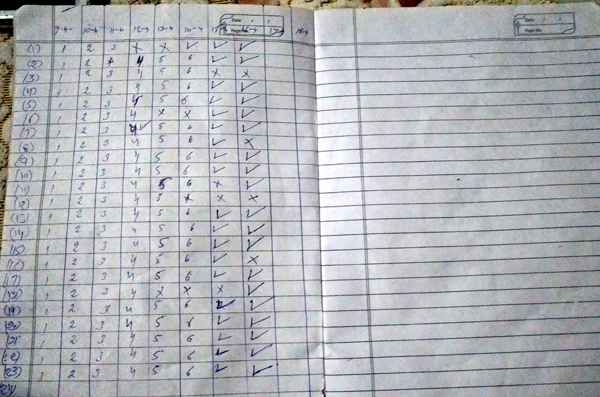 9-4- 10-4 11-4 12-4 13-4 14-4 15-4 16-4 17-4 18-4
Date: / /
Page No.
Date: / /
Page No.
(1) 1 2 3 x x ✓ ✓ ✓
(2) 1 2 x 4 5 6 ✓ ✓
(3) 1 2 3 4 5 6 x x
(4) 1 2 3 4 5 6 ✓ ✓
(5) 1 2 3 4 5 6 ✓ ✓
(6) 1 2 3 4 x x ✓ ✓
(7) 1 2 3 4✓ 5 6 ✓ ✓
(8) 1 2 3 4 5 6 ✓ x
(9) 1 2 3 4 5 6 ✓ ✓
(10) 1 2 3 4 5 6 ✓ ✓
(11) 1 2 3 4 5 6 x ✓
(12) 1 2 3 4 5 x x x
(13) 1 2 3 4 5 6 ✓ ✓
(14) 1 2 3 4 5 6 ✓ ✓
(15) 1 2 3 4 5 6 ✓ ✓
(16) 1 2 3 4 5 6 ✓ x
(17) 1 2 3 4 5 6 ✓ ✓
(18) 1 2 3 4 x x x ✓
(19) 1 2 3 4 5 6 ✓ ✓
(20) 1 2 3 4 5 6 ✓ ✓
(21) 1 2 3 4 5 6 ✓ ✓
(22) 1 2 3 4 5 6 ✓ ✓
(23) 1 2 3 4 5 6 ✓ ✓
24